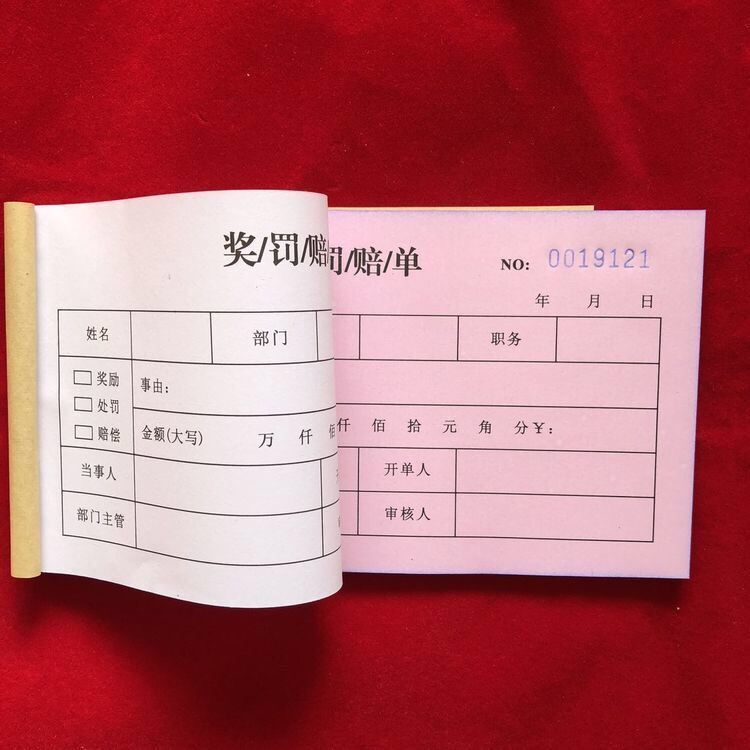 奖/罚/赔罚/赔/单 NO: 0019121
年 月 日
姓名 部门 职务
奖励 事由:
处罚
赔偿 金额(大写) 万 仟 佰仟 佰 拾 元 角 分¥:
当事人 开单人
部门主管 审核人